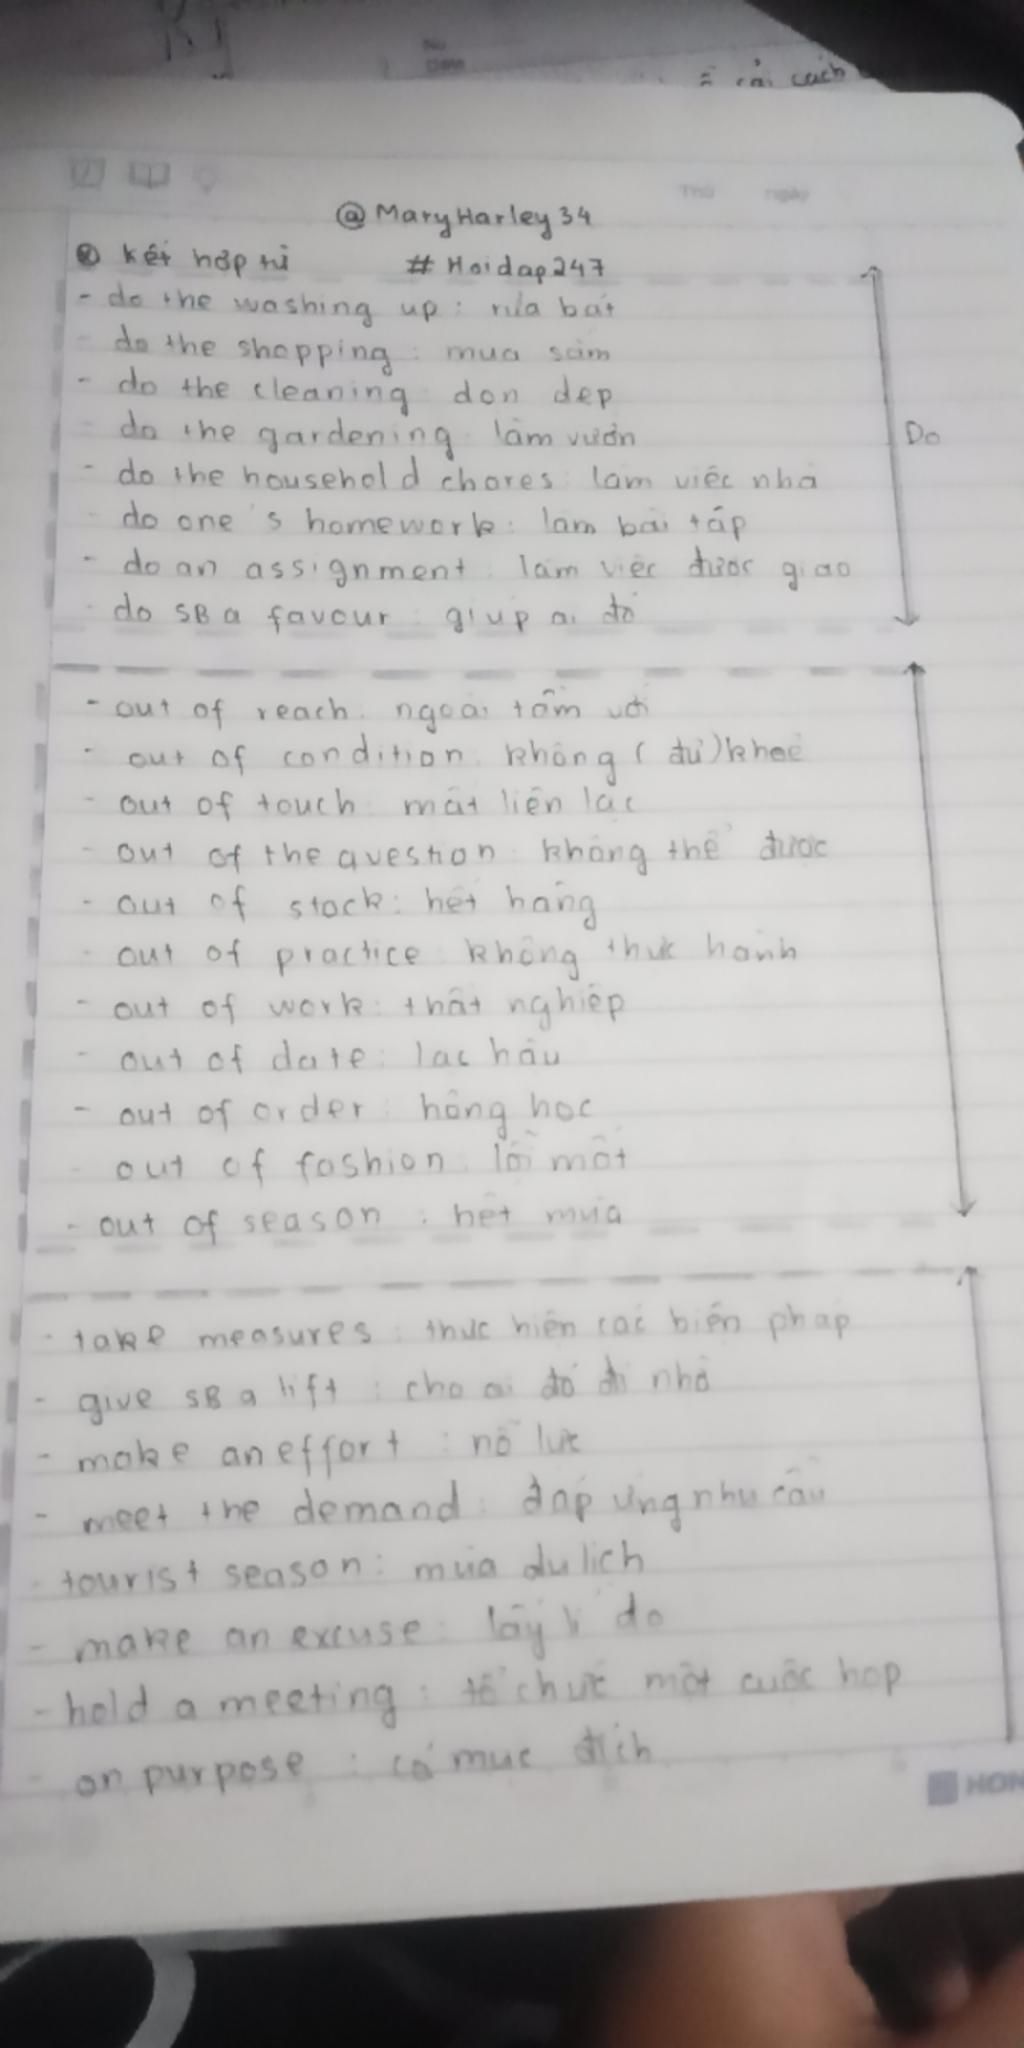 cải cách
Thứ ngày
@MaryHarley34
kết hợp từ #Hoidap247
- do the washing up : rửa bát
- do the shopping : mua sắm
- do the cleaning : dọn dẹp
- do the gardening : làm vườn
- do the household chores : làm việc nhà
Do
- do one's homework : làm bài tập
- do an assignment : làm việc được giao
- do SB a favour : giúp ai đó
- out of reach : ngoài tầm với
- out of condition : không (đủ) khoẻ
- out of touch : mất liên lạc
- out of the question : không thể được
- out of stock : hết hàng
- out of practice : không thực hành
- out of work : thất nghiệp
- out of date : lạc hậu
- out of order : hỏng hóc
- out of fashion : lỗi mốt
- out of season : hết mùa
- take measures : thực hiện các biện pháp
- give SB a lift : cho ai đó đi nhờ
- make an effort : nỗ lực
- meet the demand : đáp ứng nhu cầu
- tourist season : mùa du lịch
- make an excuse : lấy lí do
- hold a meeting : tổ chức một cuộc họp
- on purpose : có mục đích
HON